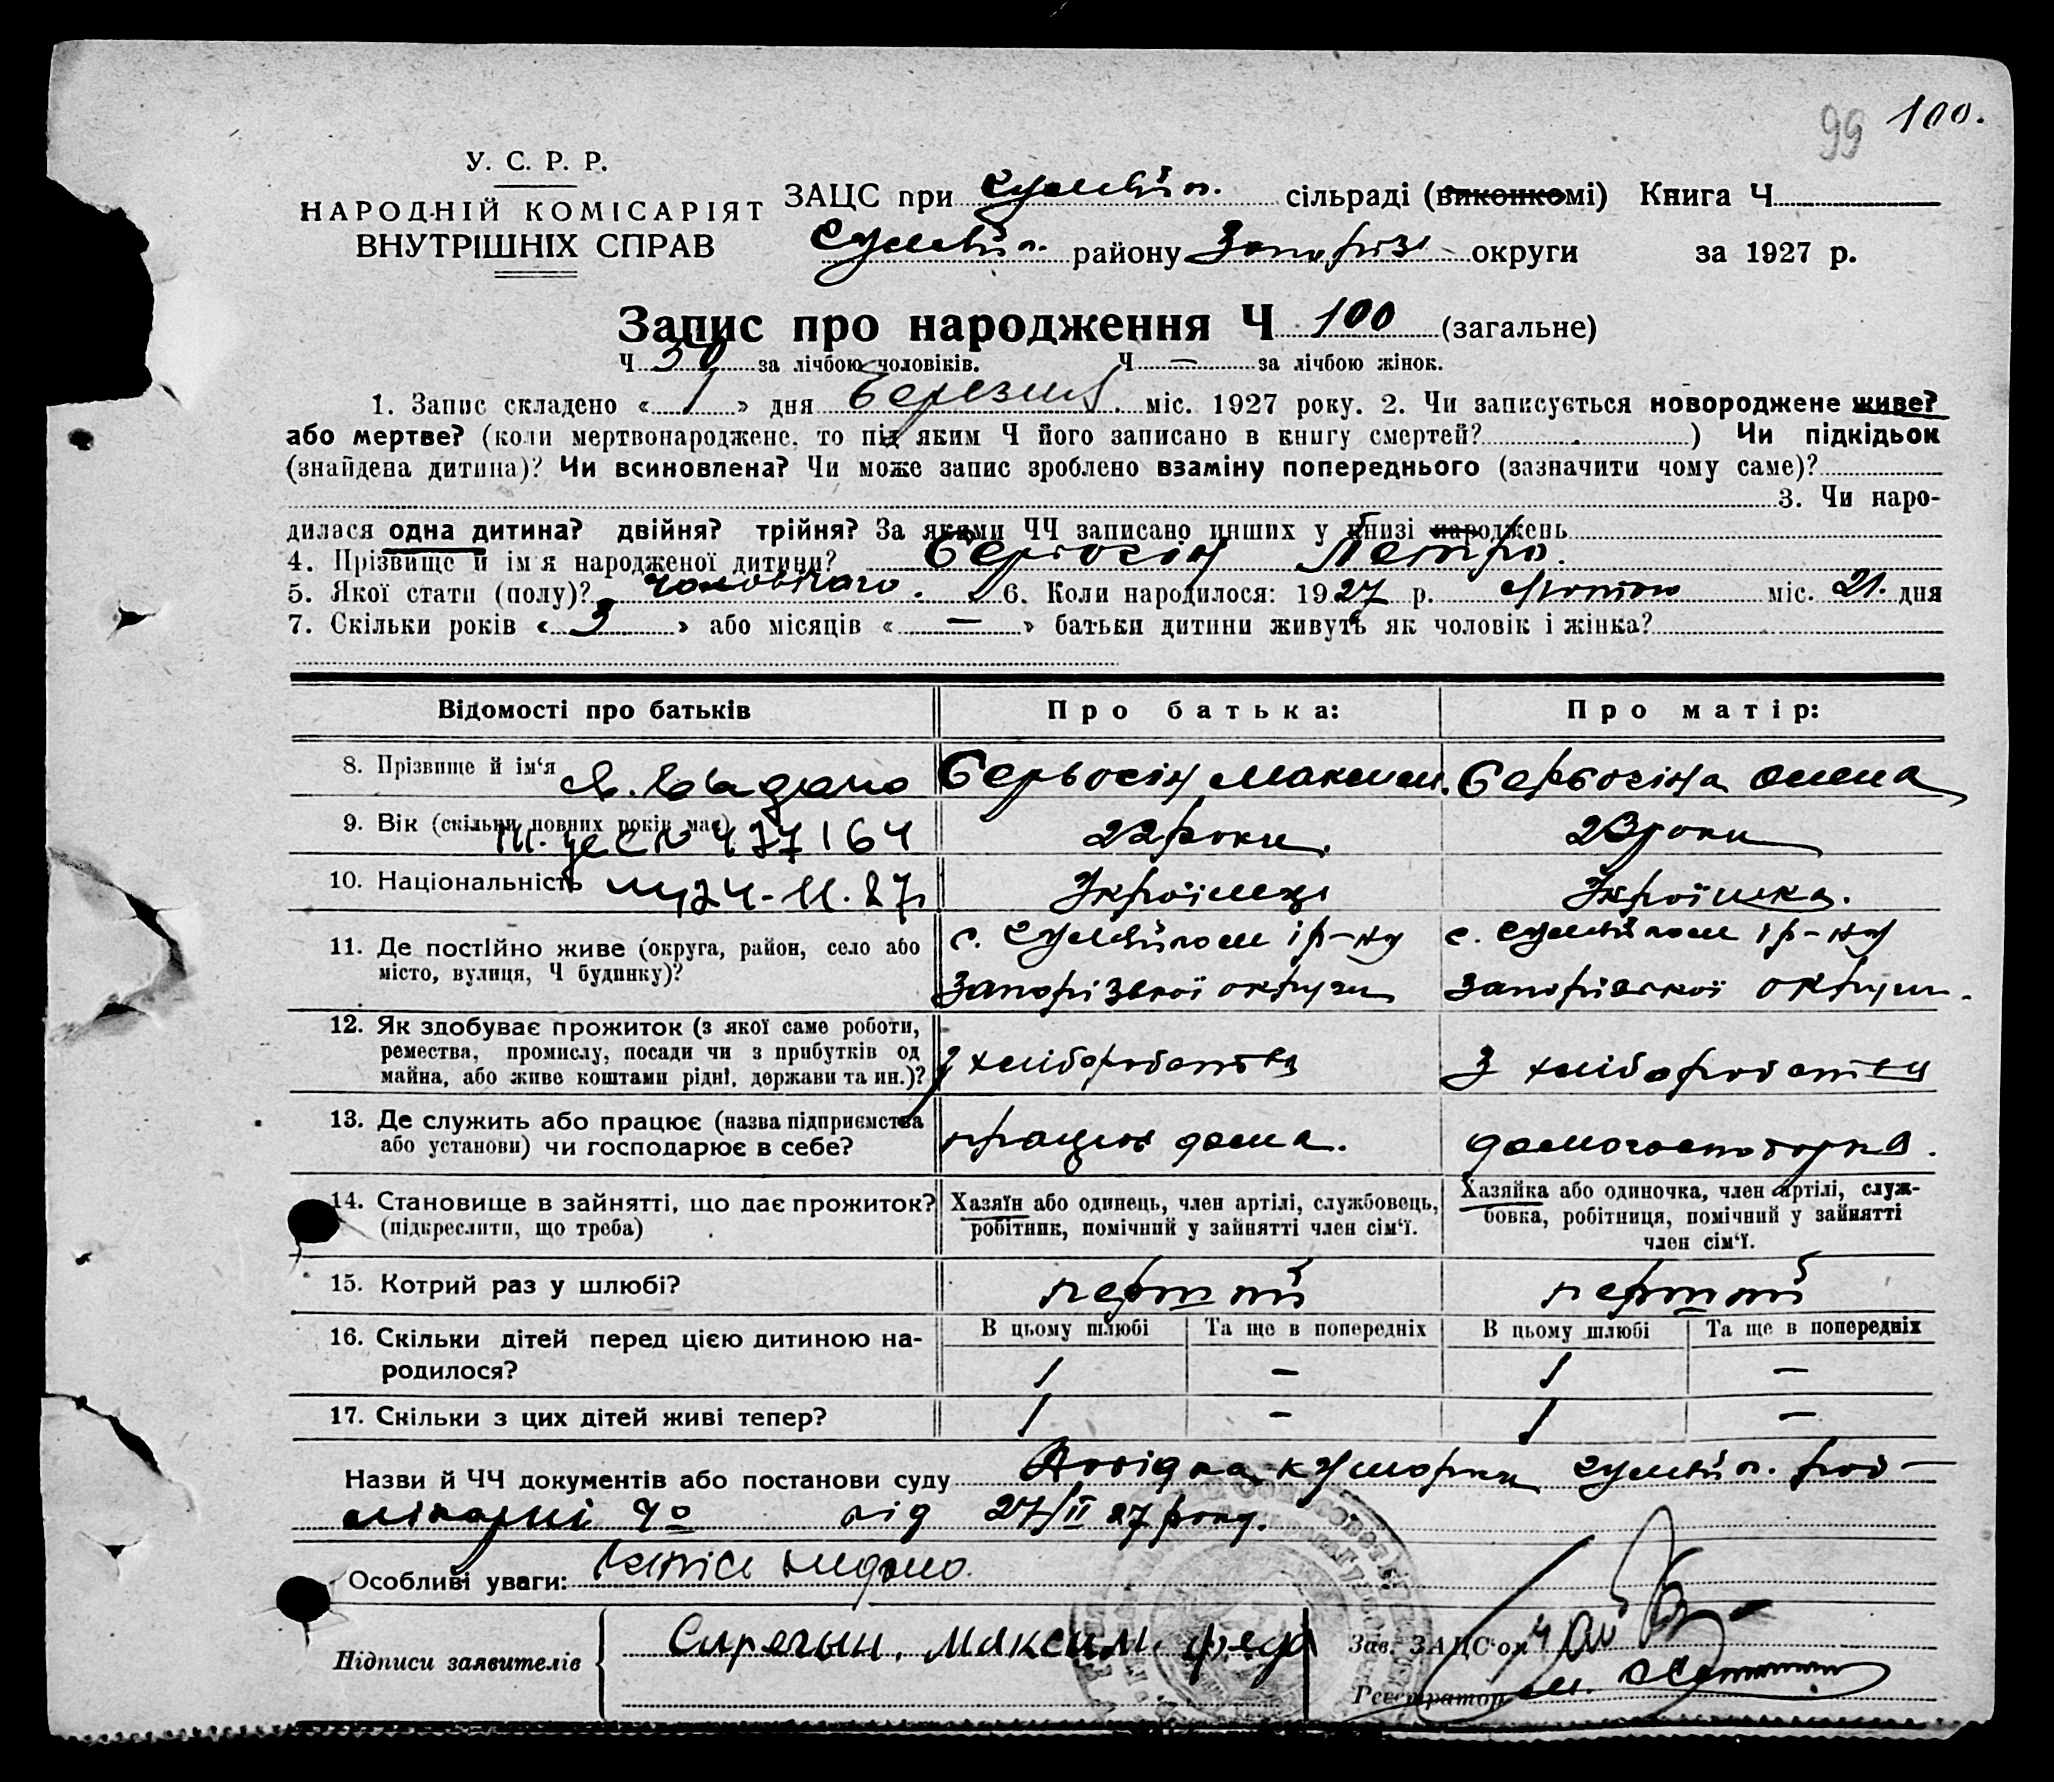 99 100.
У. С. Р. Р.
НАРОДНІЙ КОМІСАРІЯТ
ВНУТРІШНІХ СПРАВ
ЗАЦС при сільраді (виконкомі) Книга Ч.
району Запоріз округи за 1927 р.
Запис про народження Ч 100 (загальне)
Ч за лічбою чоловіків. Ч — за лічбою жінок.
1. Запис складено « 1 » дня Березня міс. 1927 року. 2. Чи записується новороджене живе?
або мертве? (коли мертвонароджене, то під яким Ч його записано в книгу смертей? ) Чи підкідьок
(знайдена дитина)? Чи всиновлена? Чи може запис зроблено взаміну попереднього (зазначити чому саме)?
3. Чи наро-
дилася одна дитина? двійня? трійня? За якими ЧЧ записано инших у книзі народжень
4. Прізвище й ім'я народженої дитини? Петро.
5. Якої стати (полу)? чоловічого. 6. Коли народилося: 1927 р. лютого міс. 21. дня
7. Скільки років « 3 » або місяців « — » батьки дитини живуть як чоловік і жінка?
Відомості про батьків Про батька: Про матір:
8. Прізвище й ім'я Максим. Олена
9. Вік (скільки повних років має) 22 роки. 23 роки
10. Національність Українець Українка.
11. Де постійно живе (округа, район, село або місто, вулиця, Ч будинку)?
с. і р-ну с. і р-ну
Запорізької округи Запорізької округи.
12. Як здобуває прожиток (з якої саме роботи,
ремества, промислу, посади чи з прибутків од
майна, або живе коштами рідні, держави та ин.)?
з хліборобства з хліборобства
13. Де служить або працює (назва підприємства
або установи) чи господарює в себе?
працює дома. домогосподарка.
14. Становище в зайнятті, що дає прожиток?
(підкреслити, що треба)
Хазяїн або одинець, член артілі, службовець,
робітник, помічний у зайнятті член сім'ї.
Хазяйка або одиночка, член артілі, служ-
бовка, робітниця, помічний у зайнятті
член сім'ї.
15. Котрий раз у шлюбі? перший перший
16. Скільки дітей перед цією дитиною на-
родилося?
В цьому шлюбі Та ще в попередніх В цьому шлюбі Та ще в попередніх
1 — 1 —
17. Скільки з цих дітей живі тепер? 1 — 1 —
Назви й ЧЧ документів або постанови суду Довідка
Ч° від 27/II 27 року.
Особливі уваги:
Підписи заявителів Максим Зав. ЗАЦС'ом
Реєстратор